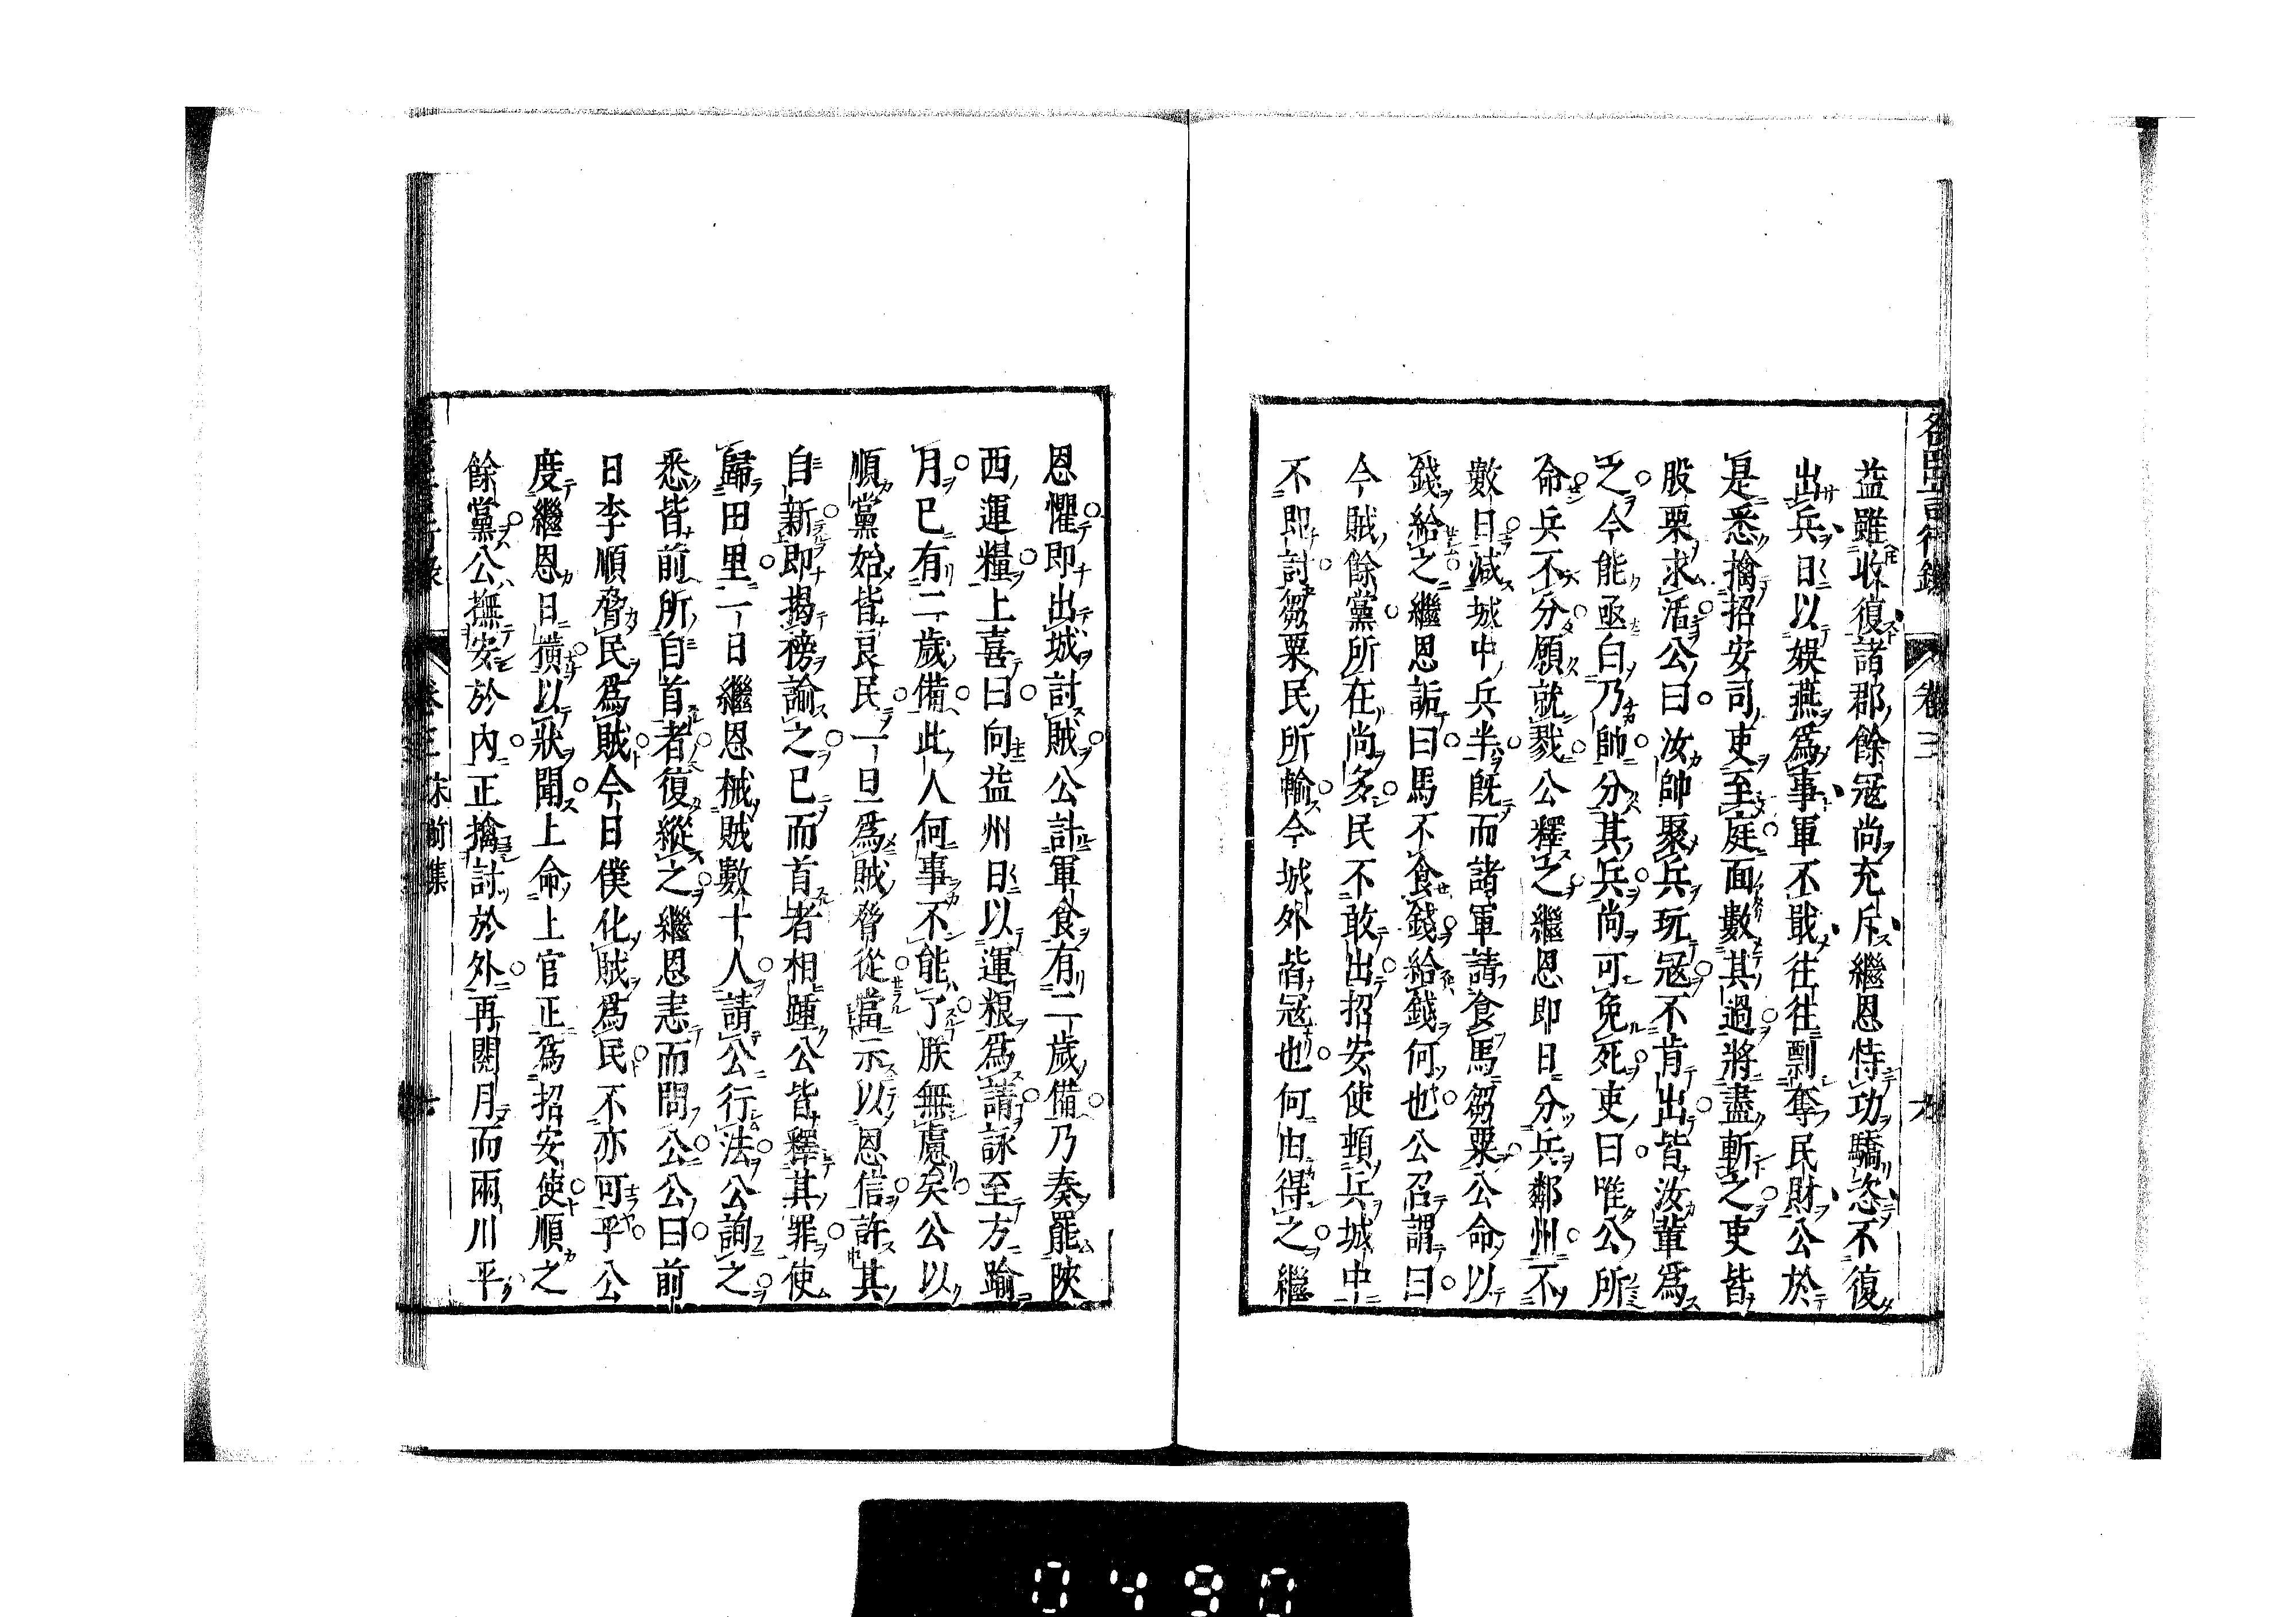 益雖收復諸郡餘冦尚充斥繼恩恃功驕恣不復
出兵日以娛燕爲事軍不戢往往剽奪民財公於
是悉擒招安司吏至庭面數其過將盡斬之吏皆
股栗求活公曰汝帥聚兵玩冦不肯出皆汝輩爲
之今能亟白乃帥分其兵尚可免死吏曰唯公所
命兵不分願就戮公釋之繼恩即日分兵鄰州不
數日減城中兵半旣而諸軍請食馬芻粟公命以
錢給之繼恩詬曰馬不食錢給錢何也公召謂曰
今賊餘黨所在尚多民不敢出招安使頓兵城中
不即討芻粟民所輸今城外皆冦也何由得之繼
恩懼即出城討賊公計軍食有二歲備乃奏罷陝
西運糧上喜曰向益州日以運粮爲請詠至方踰
月已有二歲備此人何事不能了朕無慮矣公以
順黨始皆良民一旦爲賊脅從當示以恩信許其
自新即揭榜諭之已而首者相踵公皆釋其罪使
歸田里一日繼恩械賊數十人請公行法公詢之
悉皆前所自首者復縱之繼恩恚而問公公曰前
日李順脅民爲賊今日僕化賊爲民不亦可乎公
度繼恩日橫以狀聞上命上官正爲招安使順之
餘黨公撫安於內正擒討於外再閱月而兩川平
卷三
前集